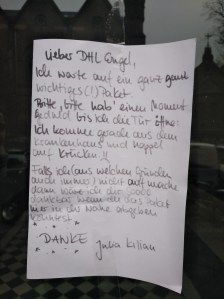 Lieber DHL Engel,
Ich warte auf ein ganz ganz
wichtiges (!) Paket.
Bitte, bitte hab' einen Moment
Geduld bis ich die Tür öffne:
Ich komme gerade aus dem
Krankenhaus und hoppel
auf Krücken!!
Falls ich (aus welchen Gründen
auch immer) nicht aufmache
dann wäre ich dir sehr
dankbar, wenn du das Paket
hier in der Nähe abgeben
könntest
DANKE Julia Kilian